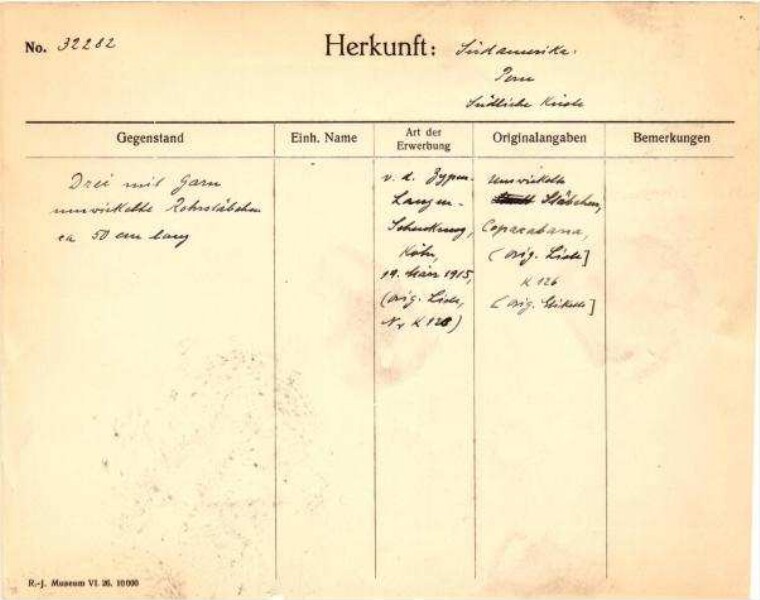 No. 32282
Herkunft: Südamerika.
Peru
Südliche Küste
Gegenstand
Einh. Name
Art der Erwerbung
Originalangaben
Bemerkungen
Drei mit Garn
umwickelte Rohrstäbchen
ca 50 cm lang
v. d. Zypen-
Langen-
Schenkung,
Köln,
19. März 1915,
(orig. Liste,
Nr K 126)
Umwickelte
Stäbchen,
Copacabana,
(orig. Liste]
K 126
[orig. Etikette]
R.-J. Museum VI. 26. 10000